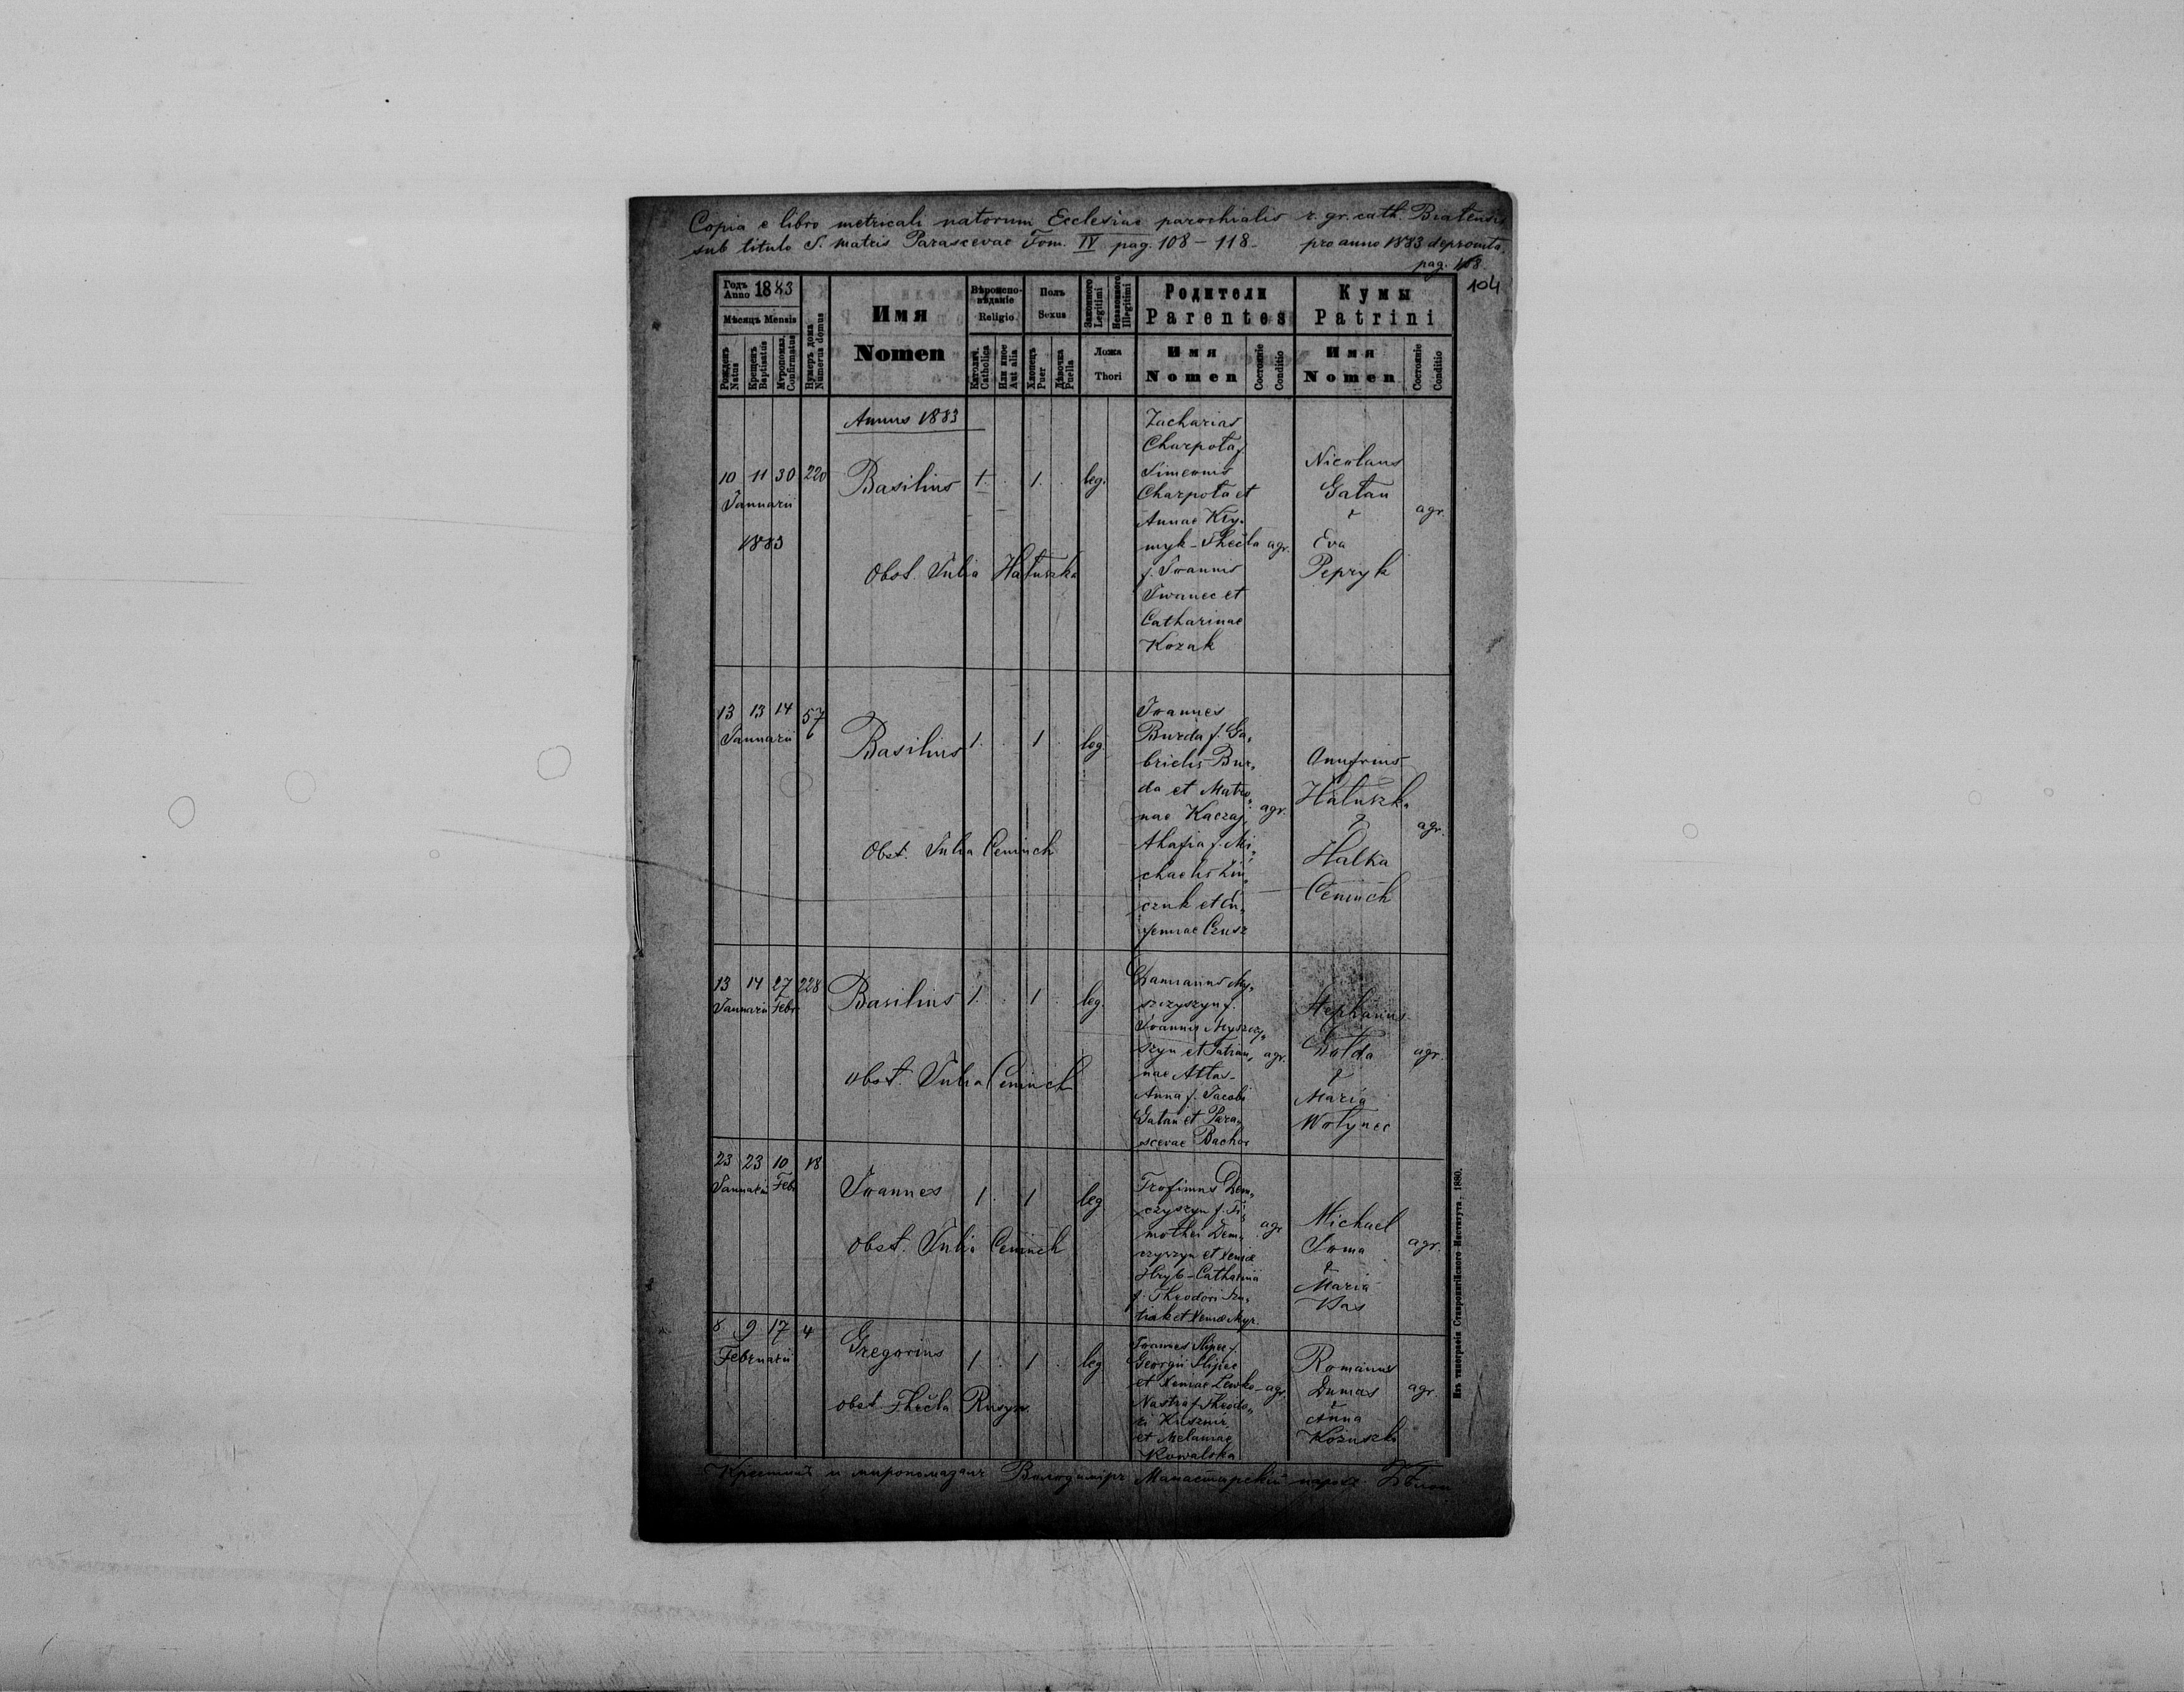 Copia e libro metricali natorum Ecclesiae parochialis r. gr. cath. Biatensis
sub titulo S. Matris Parascevae Tom. IV pag. 108 – 118. pro anno 1883 depromta.
pag. 108
104
Годъ Anno 1883
Мѣсяцъ Mensis
Рожденъ Natus
Крещенъ Baptisatus
Мѵропомаз. Confirmatus
Нумеръ дома Numerus domus
Имя
Nomen
Вѣроисповѣданіе
Religio
Католич. Catholica
Или иное Aut alia
Полъ
Sexus
Хлопецъ Puer
Дѣвочка Puella
Законного Legitimi
Незаконного Illegitimi
Ложа
Thori
Родители
Parentes
Имя
Nomen
Состояніе
Conditio
Кумы
Patrini
Имя
Nomen
Состояніе
Conditio
Annus 1883
10 11 30 220
Januarii
1883
Basilius 1. . 1. . leg.
Obst. Julia Hatuszka
Zacharias
Charpota f.
Simeonis
Charpota et
Annae Kry-
myk - Thecla agr.
f. Joannis
Iwanec et
Catharinae
Kozak
Nicolaus
Gatan
agr.
Eva
Pepryk
13 13 14 57
Januarii
Basilius 1. . 1 . leg.
Obst. Julia Ceninch
Joannes
Burda f. Ga„
brielis Bur„
da et Matro„
nae Kaczaj agr.
Ahafia f. Mi„
chaelis
czuk et Eu„
femiae Czusz
Onufrius
Hatuszka
agr.
Halka
Ceninch
13 14 27 228
Januarii Febr.
Basilius 1. . 1 . leg.
Obst. Julia Ceninch
Damianus My„
szczyszyn f.
Joannis Myszczy„
szyn et Tatian„ agr.
nae Attas-
Anna f. Jacobi
Gatan et Para„
scevae Bachor
Stephanus
agr.
Maria
Wotynec
23 23 10 18
Januarii Febr
Joannes 1. 1 leg
Obst. Julia Ceninch
Trofimus Dem„
czyszyn f. Ti„
mothei Dem„ agr
czyszyn et Xeniae
Hryb - Catharina
f. Theodori
et Xeniae Myr.
Michael
agr.
Maria
Was
8. 9 17 4
Februarii
Gregorius 1 . 1 . leg
obst. Thecla Rusyn.
Joannes Slipec f.
Georgii Slipec
et Xeniae Lewko - agr.
Nastia f. Theodo„
ri Kusznir
et Melaniae
Kowalska
Romanus
Dumas agr.
Anna
Kozuszko
Крестилъ и миропомазалъ Володимиръ Манастырскій парохъ
Изъ типографіи Ставропигійского Института. 1880.